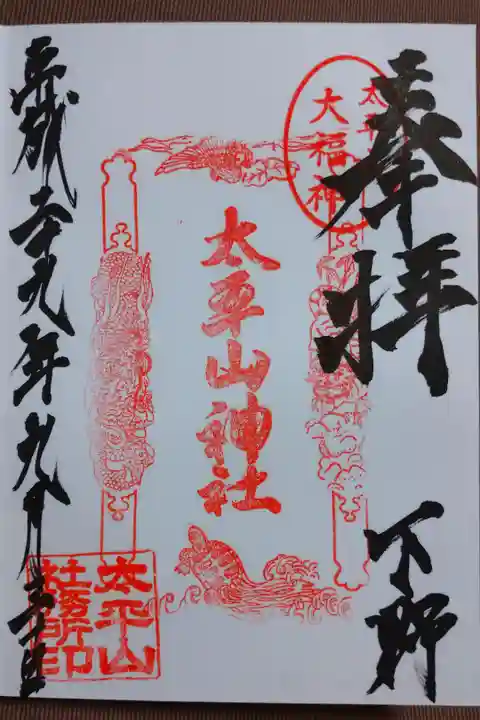 奉拝
下野
太平
大福神
太平山神社
平成二十九年九月
太平山
社務所印